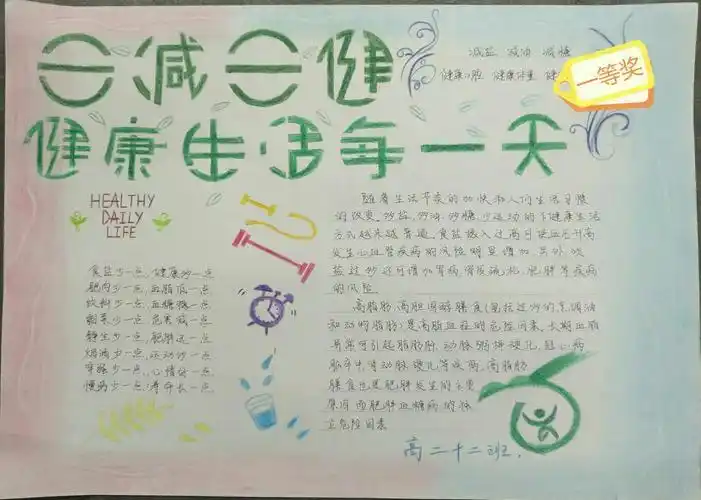 三减三健
健康生活每一天
减盐 减油 减糖
健康口腔 健康体重 健
一等奖
HEALTHY
DAILY
LIFE
食盐少一点,健康多一点
肥肉少一点,血脂低一点
饮料少一点,血糖稳一点
静坐少一点,肥胖远一点
烟酒少一点,运动多一点
心情好一点
慢病少一点,寿命长一点
随着生活节奏的加快和人们生活习惯
的改变,多盐,多油,多糖,少运动的不健康生活
方式越来越普遍,食盐摄入过高可使血压升高
发生心血管疾病的风险明显增加,另外,吃
盐过多还可增加胃病,骨质疏松,肥胖等疾病
的风险
高脂肪,高胆固醇膳食(包括过多的烹调油
和动物脂肪)是高脂血症的危险因素,长期血脂
异常可引起脂肪肝,动脉粥样硬化,冠心病
脑卒中,肾动脉硬化等疾病,高脂肪
膳食也是肥胖发生的主要
原因而肥胖血糖病的独
立危险因素
高二十二班.